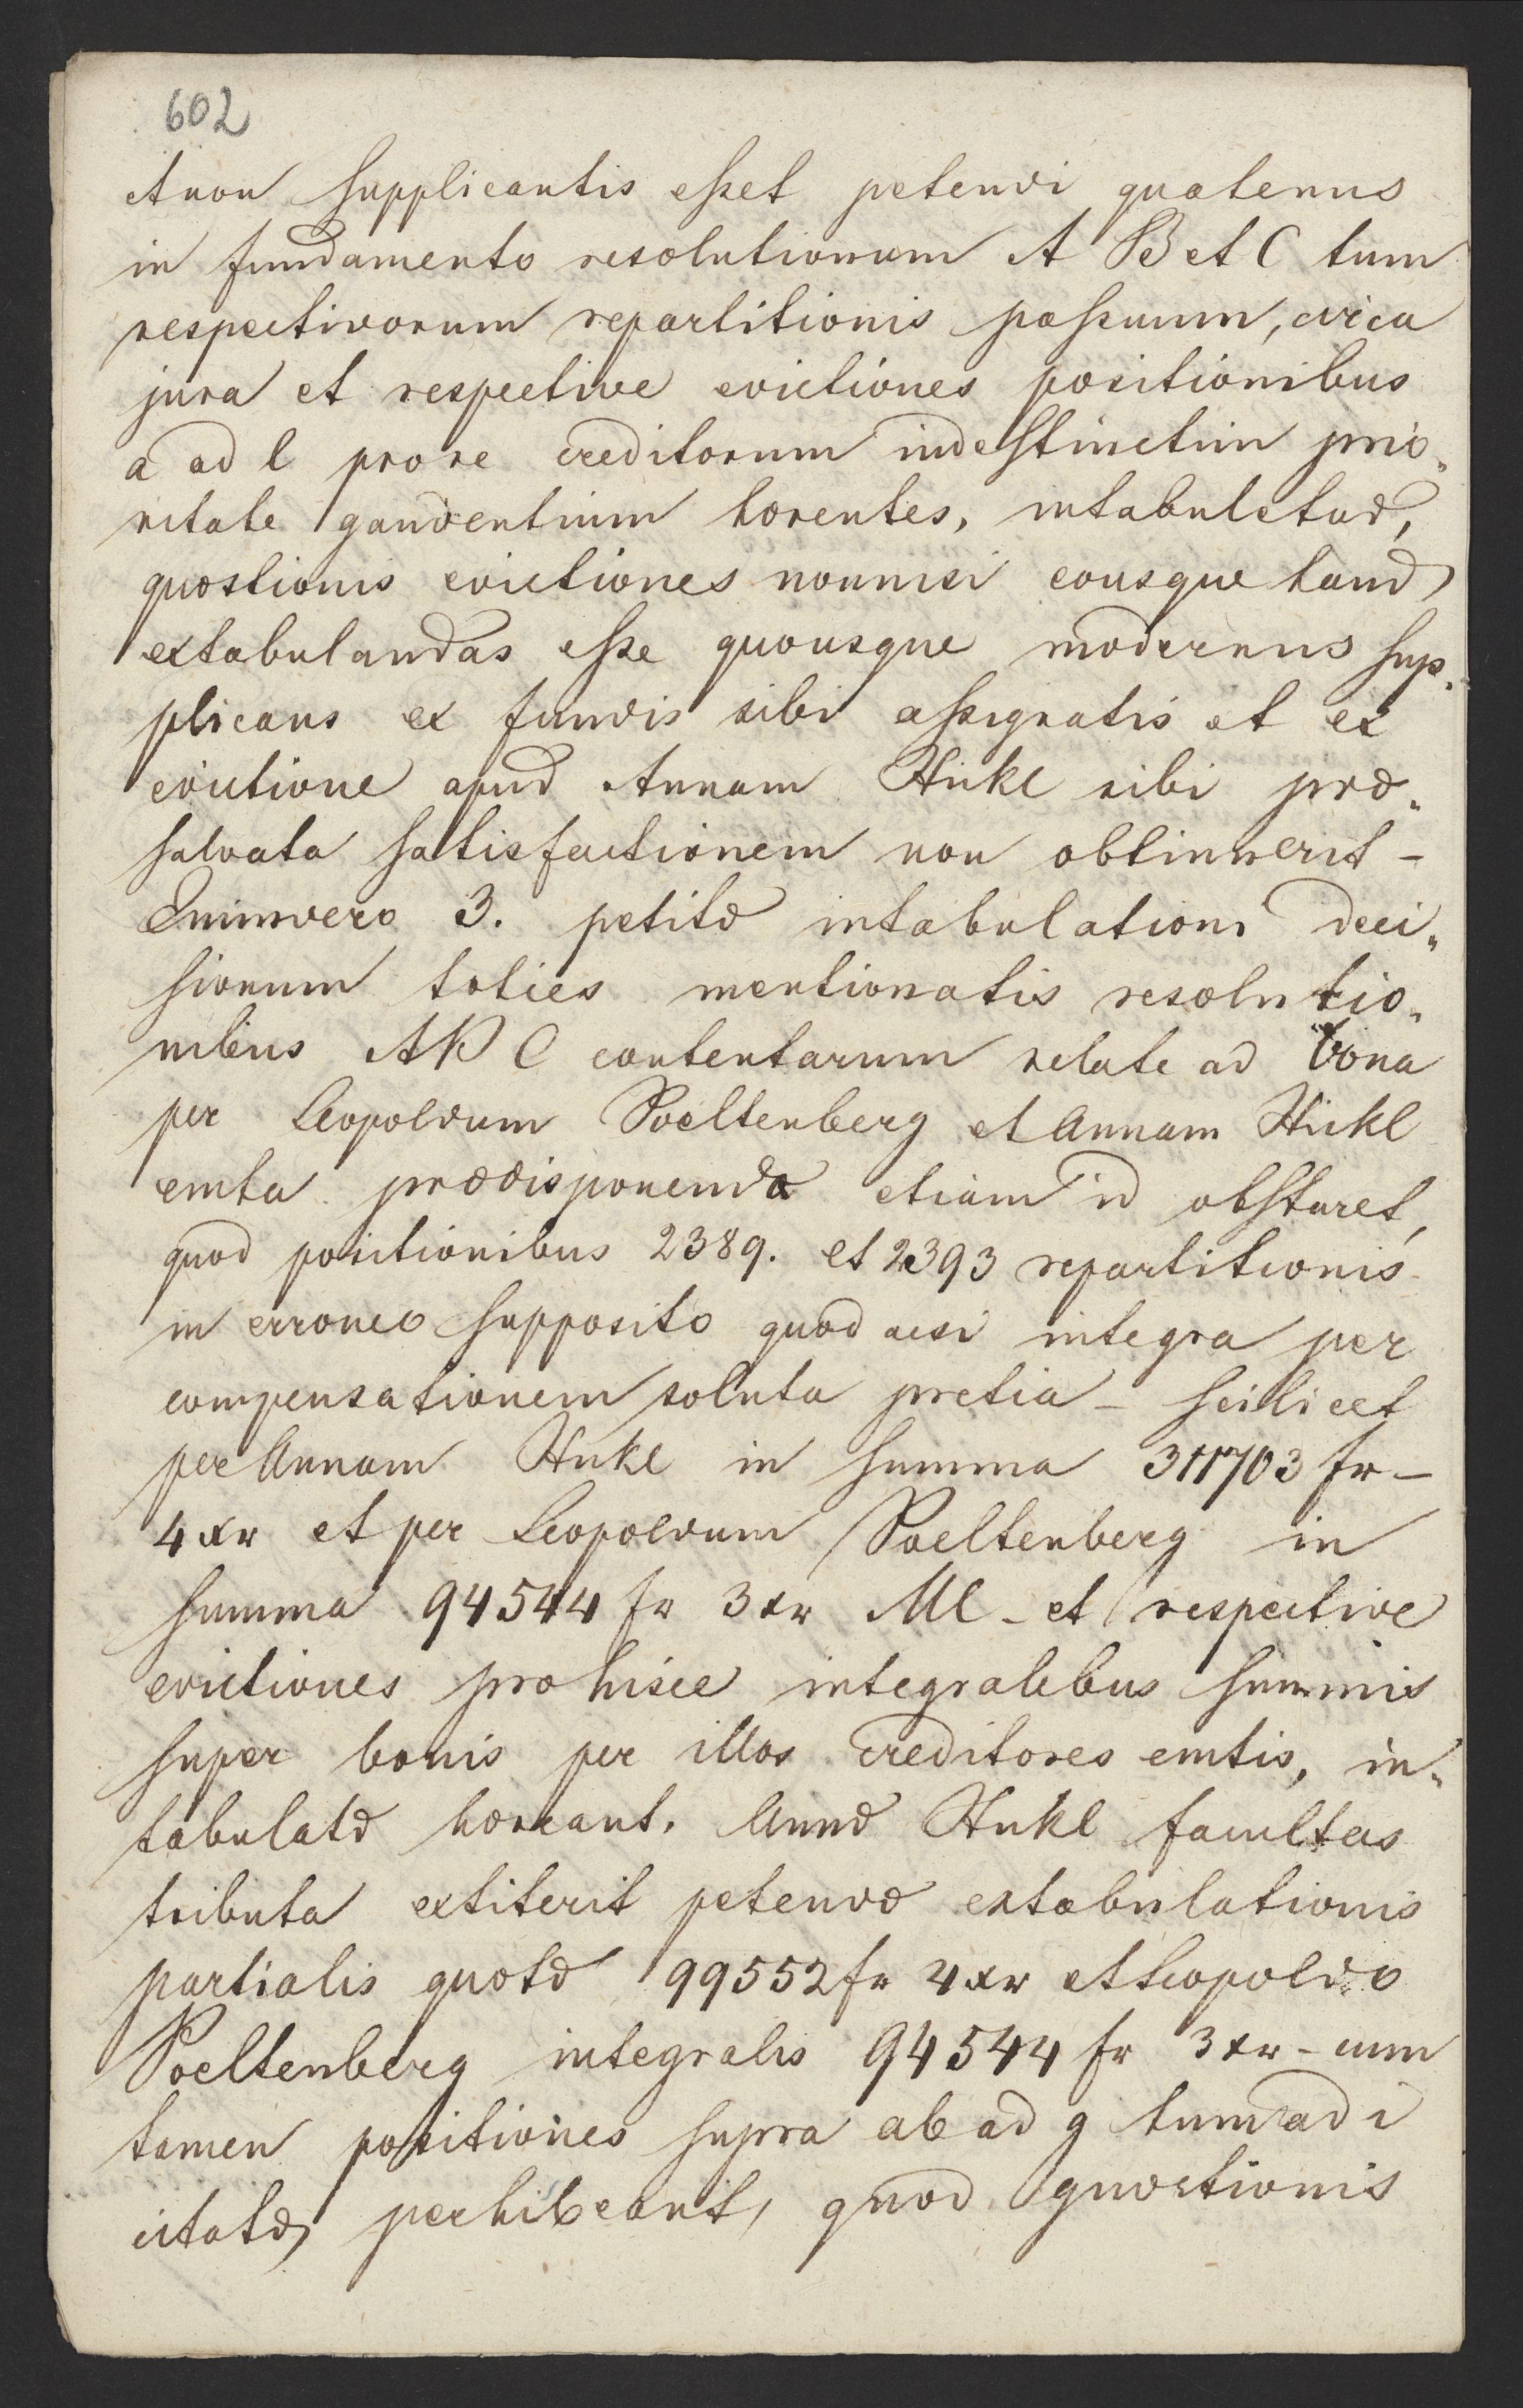 602
A non supplicantis eszet petendi quatenus
in fundamento resolutionum A B et C tum
respectivorum repartitionis paszuum, circa
jura et respective evictiones positionibus
a ad l pro re creditorum indestinctim prio„
ritate gaudentium hærentes, intabulatæ,
quæstionis evictiones nonnisi eousque haud
extabulandas esze quousque modernus sup„
plicans ex fundis sibi aszignatis et ex
evictione apud Annam Hinkl sibi præ„
salvata satisfactionem non obtinuerit –
Quinvero 3. petitæ intabulationi deci„
sionum toties mentionatis resolutio„
nibus A B C contentarum relate ad bona
per Leopoldum Poeltenberg et Annam Hinkl
emta prædisponenda etiam id obstaret,
quod positionibus 2389. et 2393 repartitionis
in erroneo supposito quod acsi integra per
compensationem soluta pretia – scilicet
per Annam Hinkl in summa 311703 fr –
4 xr et per Leopoldum Poeltenberg in
summa 94544 fr 3 xr MC – et respective
evictiones pro hisce integralibus summis
super bonis per illos creditores emtis, in„
tabulatæ hæreant. Annæ Hinkl facultas
tributa extiterit petendæ extabulationis
partialis quotæ 99552 fr 4 xr et Leopoldo
Poeltenberg integralis 94544 fr 3 xr – cum
tamen positiones supra ab a ad g tum ad i
citatæ, perhibeant, quod quæstionis